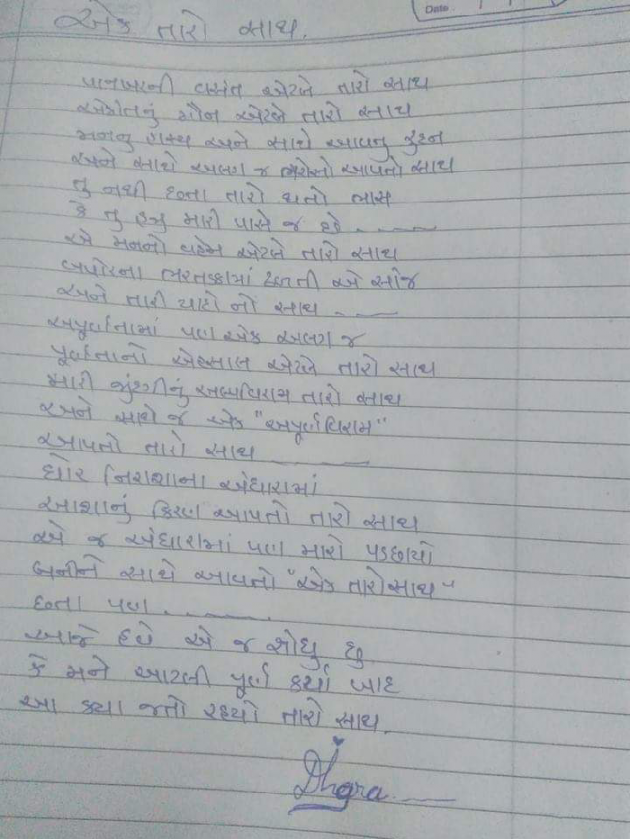 Date
એક તારો સાથ.
પાનખરની વસંત એટલે તારો સાથ
એકાંતનું મૌન એટલે તારો સાથ
મનનુ હાસ્ય અને સાથે આવતુ રુદન
અને સાથે અલગ જ ભરોસો આપતો સાથ
તુ નથી છતા તારો થતો ભાસ
કે તુ હજુ મારી પાસે જ છે
એ મનનો વહેમ એટલે તારો સાથ
બપોરના ભરતડકામાં ઢળતી એ સાંજ
અને તારી યાદો નો સાથ
અપૂર્ણતામાં પણ એક અલગ જ
પૂર્ણતાનો એહસાસ એટલે તારો સાથ
મારી જીંદગીનું અલ્પવિરામ તારો સાથ
અને સાથે જ એક "અપૂર્ણવિરામ"
આપતો તારો સાથ
ઘોર નિરાશાના અંધારામાં
આશાનું કિરણ આપતો તારો સાથ
એ જ અંધારામાં પણ મારો પડછાયો
બનીને સાથે આવતો "એક તારો સાથ"
છતા પણ
આજે હવે એ જ શોધુ છુ
કે મને આટલી પૂર્ણ કર્યા બાદ
આ ક્યા જતો રહ્યો તારો સાથ.